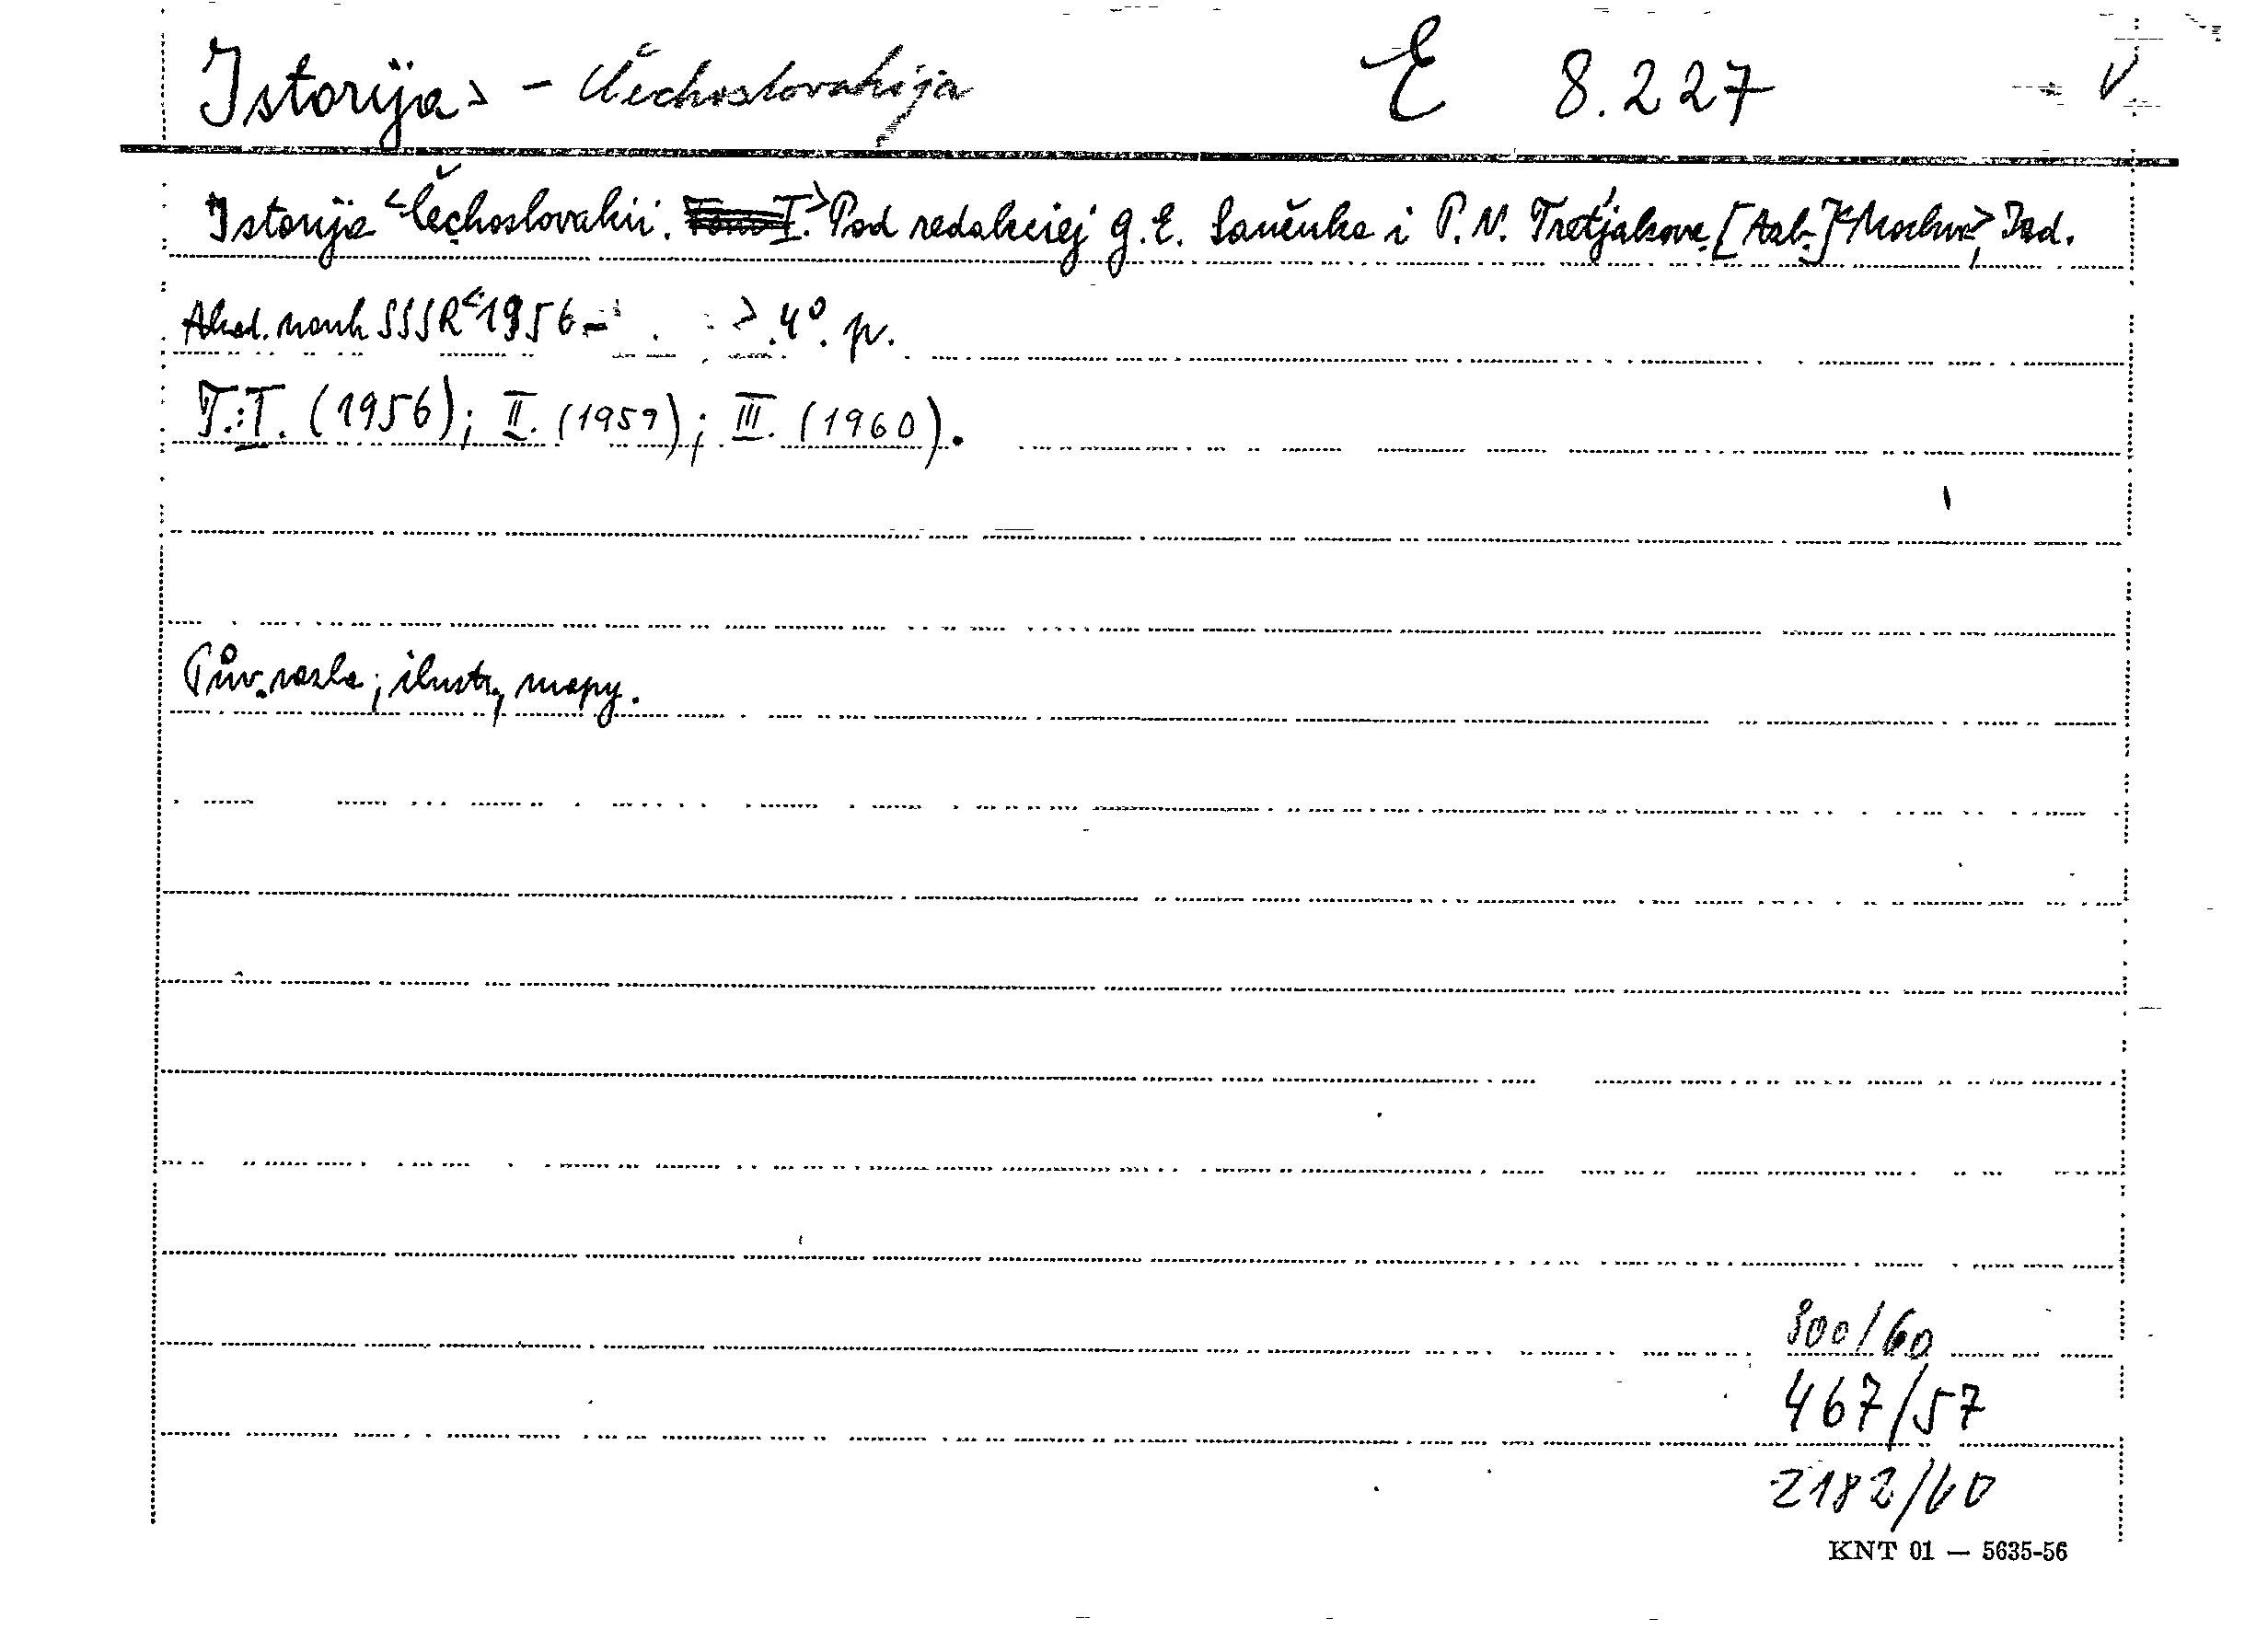 Istorija > - Čechoslovakija E 8.227 V
Istorija <Čechoslovakii. I.> Pod redakciej G. E. Sančuka i P. N. Treťjakova [Azb.] <Moskva>, Izd.
Akad. nauk SSSR <1956 - >. 4°. pv.
T.: I. (1956); II. (1959); III. (1960).
Pův. vazba; ilustr., mapy.
800/60
467/57
2182/60
KNT 01 — 5635-56